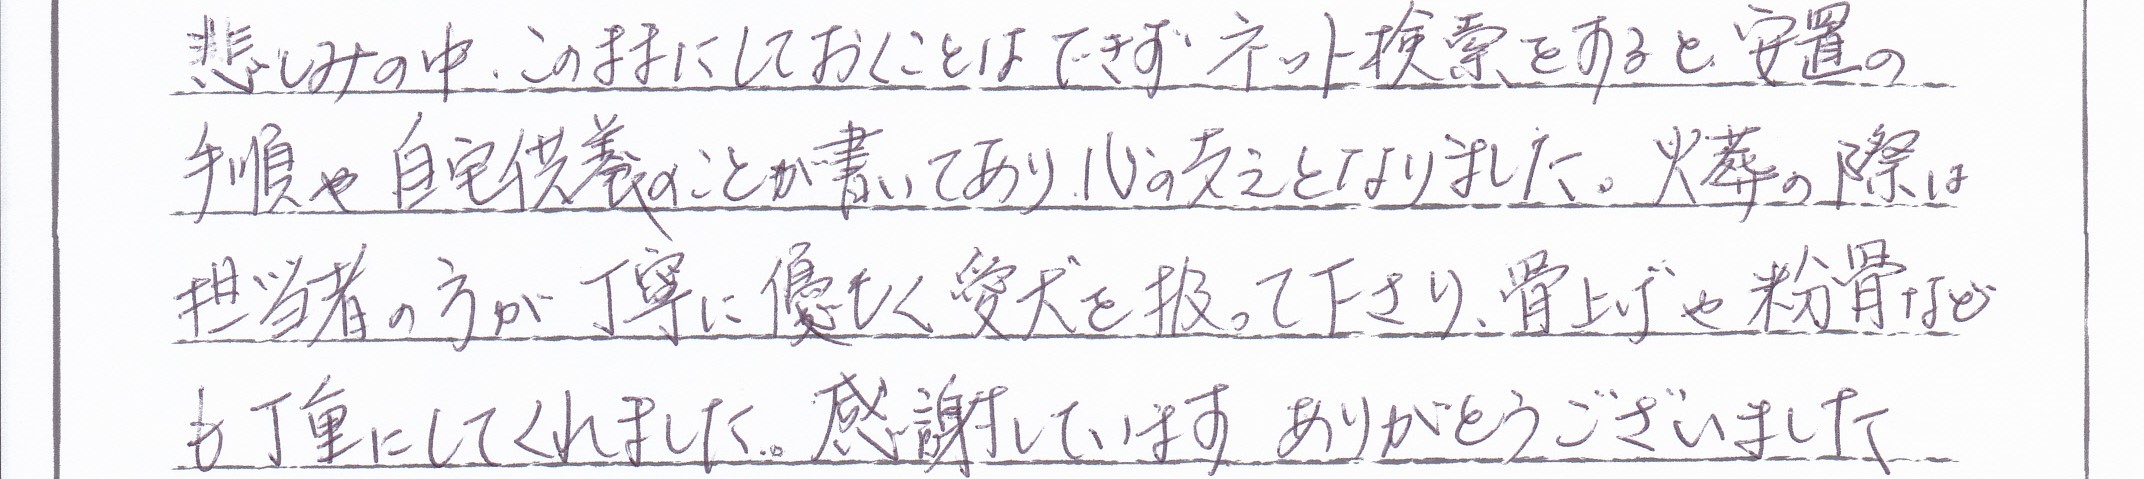 悲しみの中、このままにしておくことはできず ネット検索をすると、安置の
手順や自宅供養のことが書いてあり、心の支えとなりました。火葬の際は
担当者の方が丁寧に優しく愛犬を扱って下さり、骨上げや粉骨など
も丁重にしてくれました。感謝しています ありがとうございました